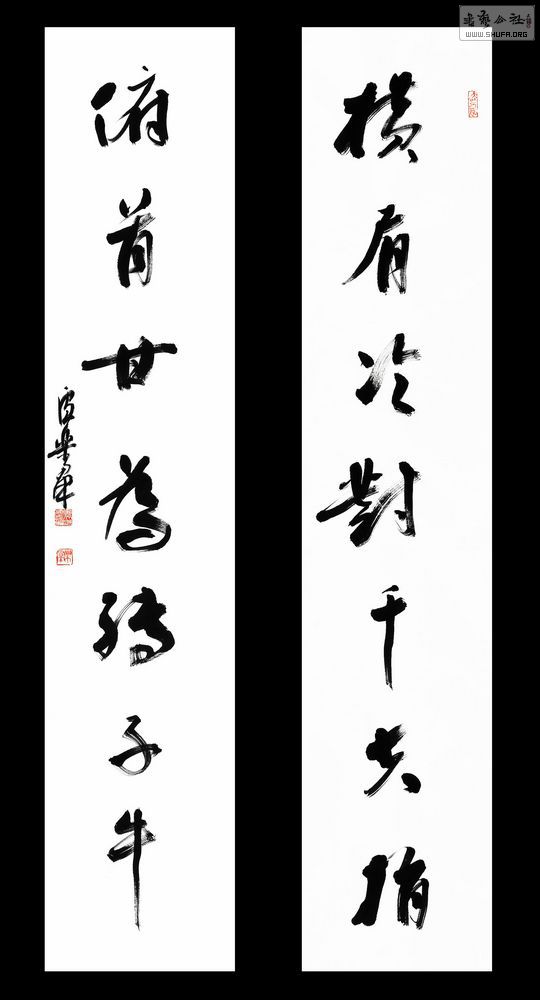 橫眉冷對千夫指
俯首甘為孺子牛
書藝公社
WWW.SHUFA.ORG